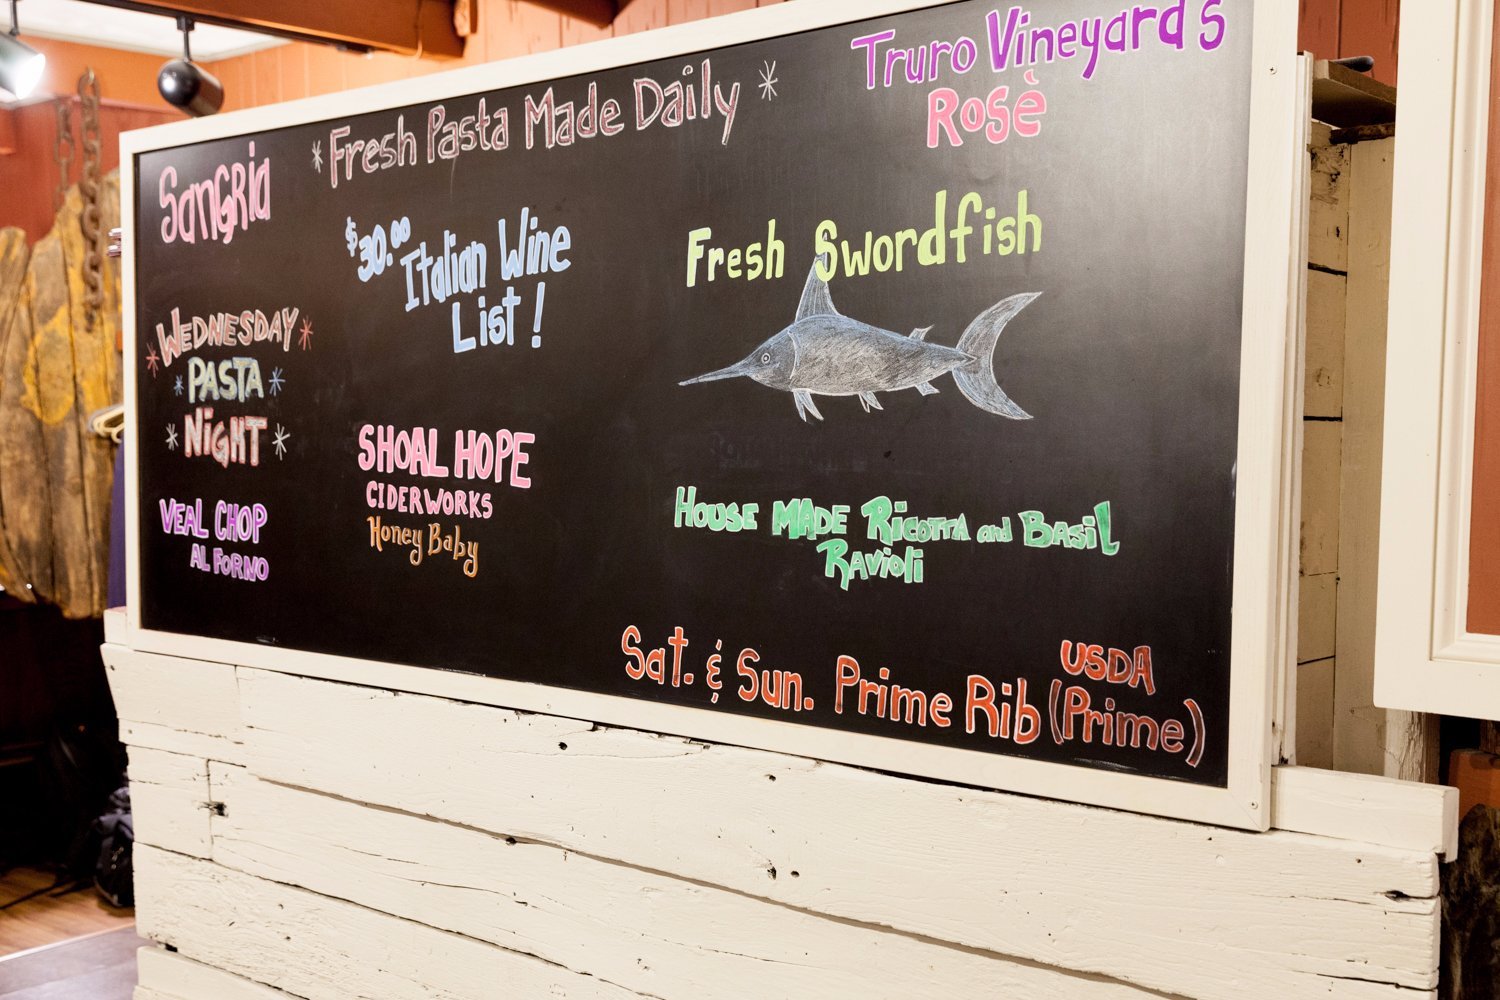 Sangria
* Fresh Pasta Made Daily *
Truro Vineyards
Rosè
$30.00 Italian Wine
List!
Fresh Swordfish
* WEDNESDAY *
* PASTA *
* NiGHT *
VEAL CHOP
AL FORNO
SHOAL HOPE
CIDERWORKS
Honey Baby
HOUSE MADE RiCOTTA and BASiL
RAvioli
Sat. & Sun. Prime Rib (USDA
Prime)